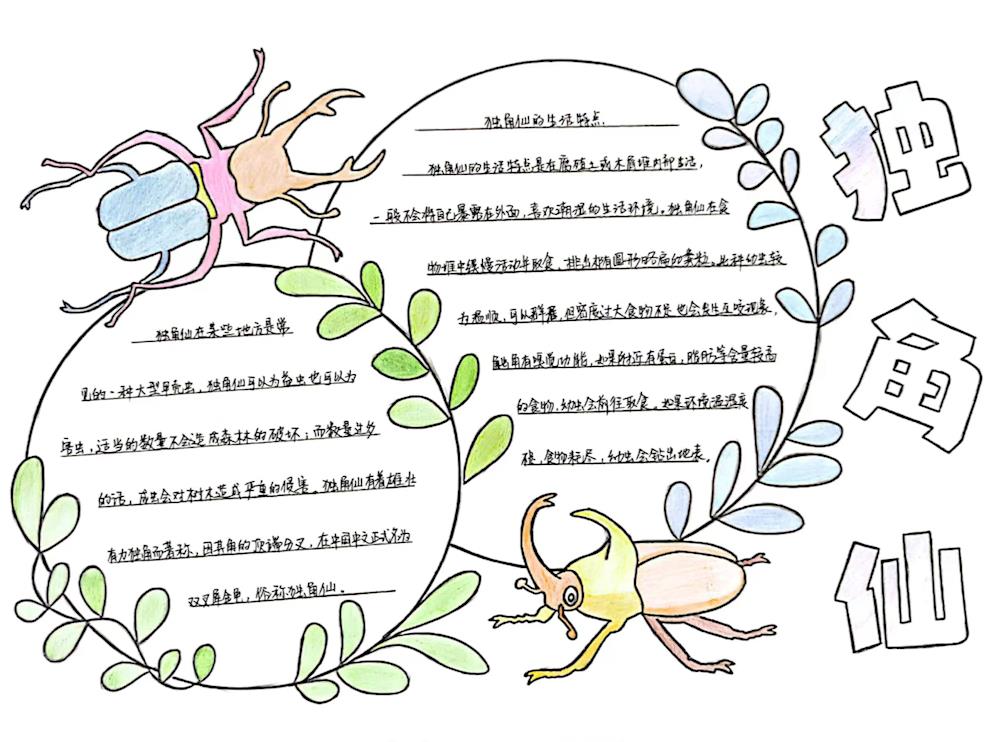 独角仙
独角仙的生活特点
独角仙的生活特点是在腐殖土或木屑堆内部生活，
一般不会将自己暴露在外面，喜欢潮湿的生活环境。独角仙在食
物堆中缓慢活动并取食，排出椭圆形略扁的粪粒。此种幼虫较
为温顺，可以群养，但密度过大食物不良也会发生互咬现象，
触角有嗅觉功能，如果附近有蛋白，脂肪等含量较高
的食物，幼虫会前往取食。如果环境温湿度
不良，食物耗尽，幼虫会钻出地表。
独角仙在某些地方是常
见的一种大型甲虫，独角仙可以为益虫也可以为
害虫，适当的数量不会造成森林的破坏；而数量过多
的话，成虫会对树木造成严重的侵害。独角仙有着雄壮
有力独角而著称，因其角的顶端分叉，在中国中文正式名为
双叉犀金龟，俗称独角仙。